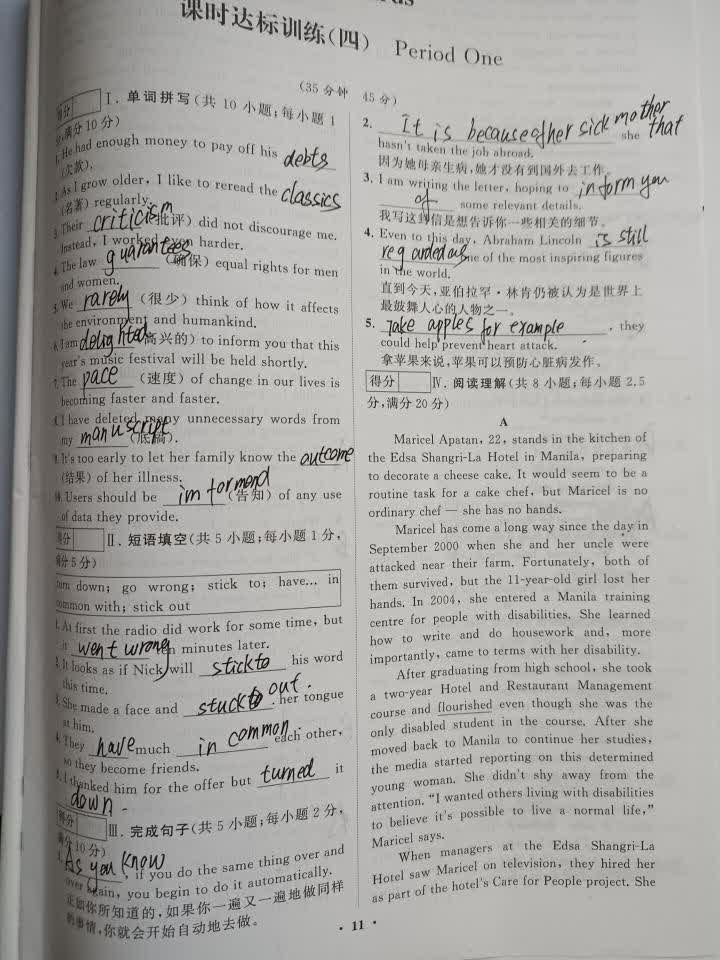 课时达标训练(四) Period One
(35分钟 45分)
得分 Ⅰ. 单词拼写(共10小题;每小题1
分,满分10分)
1. He had enough money to pay off his debts
(欠款).
2. As I grow older, I like to reread the classics
(名著) regularly.
3. Their criticism (批评) did not discourage me.
Instead, I worked even harder.
4. The law guarantees (确保) equal rights for men
and women.
5. We rarely (很少) think of how it affects
the environment and humankind.
6. I am delighted (高兴的) to inform you that this
year's music festival will be held shortly.
7. The pace (速度) of change in our lives is
becoming faster and faster.
8. I have deleted many unnecessary words from
my manuscript (底稿).
9. It's too early to let her family know the outcome
(结果) of her illness.
10. Users should be imformend (告知) of any use
of data they provide.
得分 Ⅱ. 短语填空(共5小题;每小题1分,
满分5分)
turn down; go wrong; stick to; have... in
common with; stick out
1. At first the radio did work for some time, but
it went wrong ten minutes later.
2. It looks as if Nick will stick to his word
this time.
3. She made a face and stuck out. her tongue
at him.
4. They have much in common. each other,
so they become friends.
5. I thanked him for the offer but turned it
down.
得分 Ⅲ. 完成句子(共5小题;每小题2分,
满分10分)
1. As you know, if you do the same thing over and
over again, you begin to do it automatically.
正如你所知道的,如果你一遍又一遍地做同样
的事情,你就会开始自动地去做。
2. It is because of her sick mother that she
hasn't taken the job abroad.
因为她母亲生病,她才没有到国外去工作。
3. I am writing the letter, hoping to inform you
of some relevant details.
我写这封信是想告诉你一些相关的细节。
4. Even to this day, Abraham Lincoln is still
regarded as one of the most inspiring figures
in the world.
直到今天,亚伯拉罕·林肯仍被认为是世界上
最鼓舞人心的人物之一。
5. Take apples for example, they
could help prevent heart attack.
拿苹果来说,苹果可以预防心脏病发作。
得分 Ⅳ. 阅读理解(共8小题;每小题2.5
分,满分20分)
A
Maricel Apatan, 22, stands in the kitchen of
the Edsa Shangri-La Hotel in Manila, preparing
to decorate a cheese cake. It would seem to be a
routine task for a cake chef, but Maricel is no
ordinary chef — she has no hands.
Maricel has come a long way since the day in
September 2000 when she and her uncle were
attacked near their farm. Fortunately, both of
them survived, but the 11-year-old girl lost her
hands. In 2004, she entered a Manila training
centre for people with disabilities. She learned
how to write and do housework and, more
importantly, came to terms with her disability.
After graduating from high school, she took
a two-year Hotel and Restaurant Management
course and flourished even though she was the
only disabled student in the course. After she
moved back to Manila to continue her studies,
the media started reporting on this determined
young woman. She didn't shy away from the
attention. "I wanted others living with disabilities
to believe it's possible to live a normal life,"
Maricel says.
When managers at the Edsa Shangri-La
Hotel saw Maricel on television, they hired her
as part of the hotel's Care for People project. She
· 11 ·